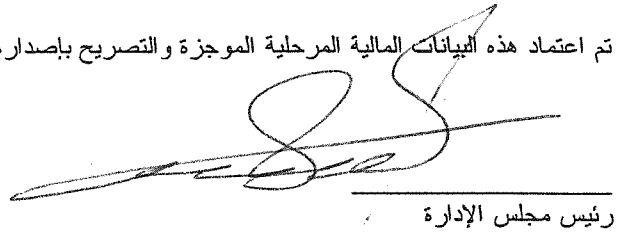 تم اعتماد هذه البيانات المالية المرحلية الموجزة والتصريح بإصداره
رئيس مجلس الإدارة